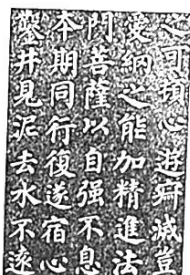 之可預心遊寂滅豈
愛納之能加精進法
門菩薩以自强不息
本期同行復遂宿心
鑿井見泥去水不遠